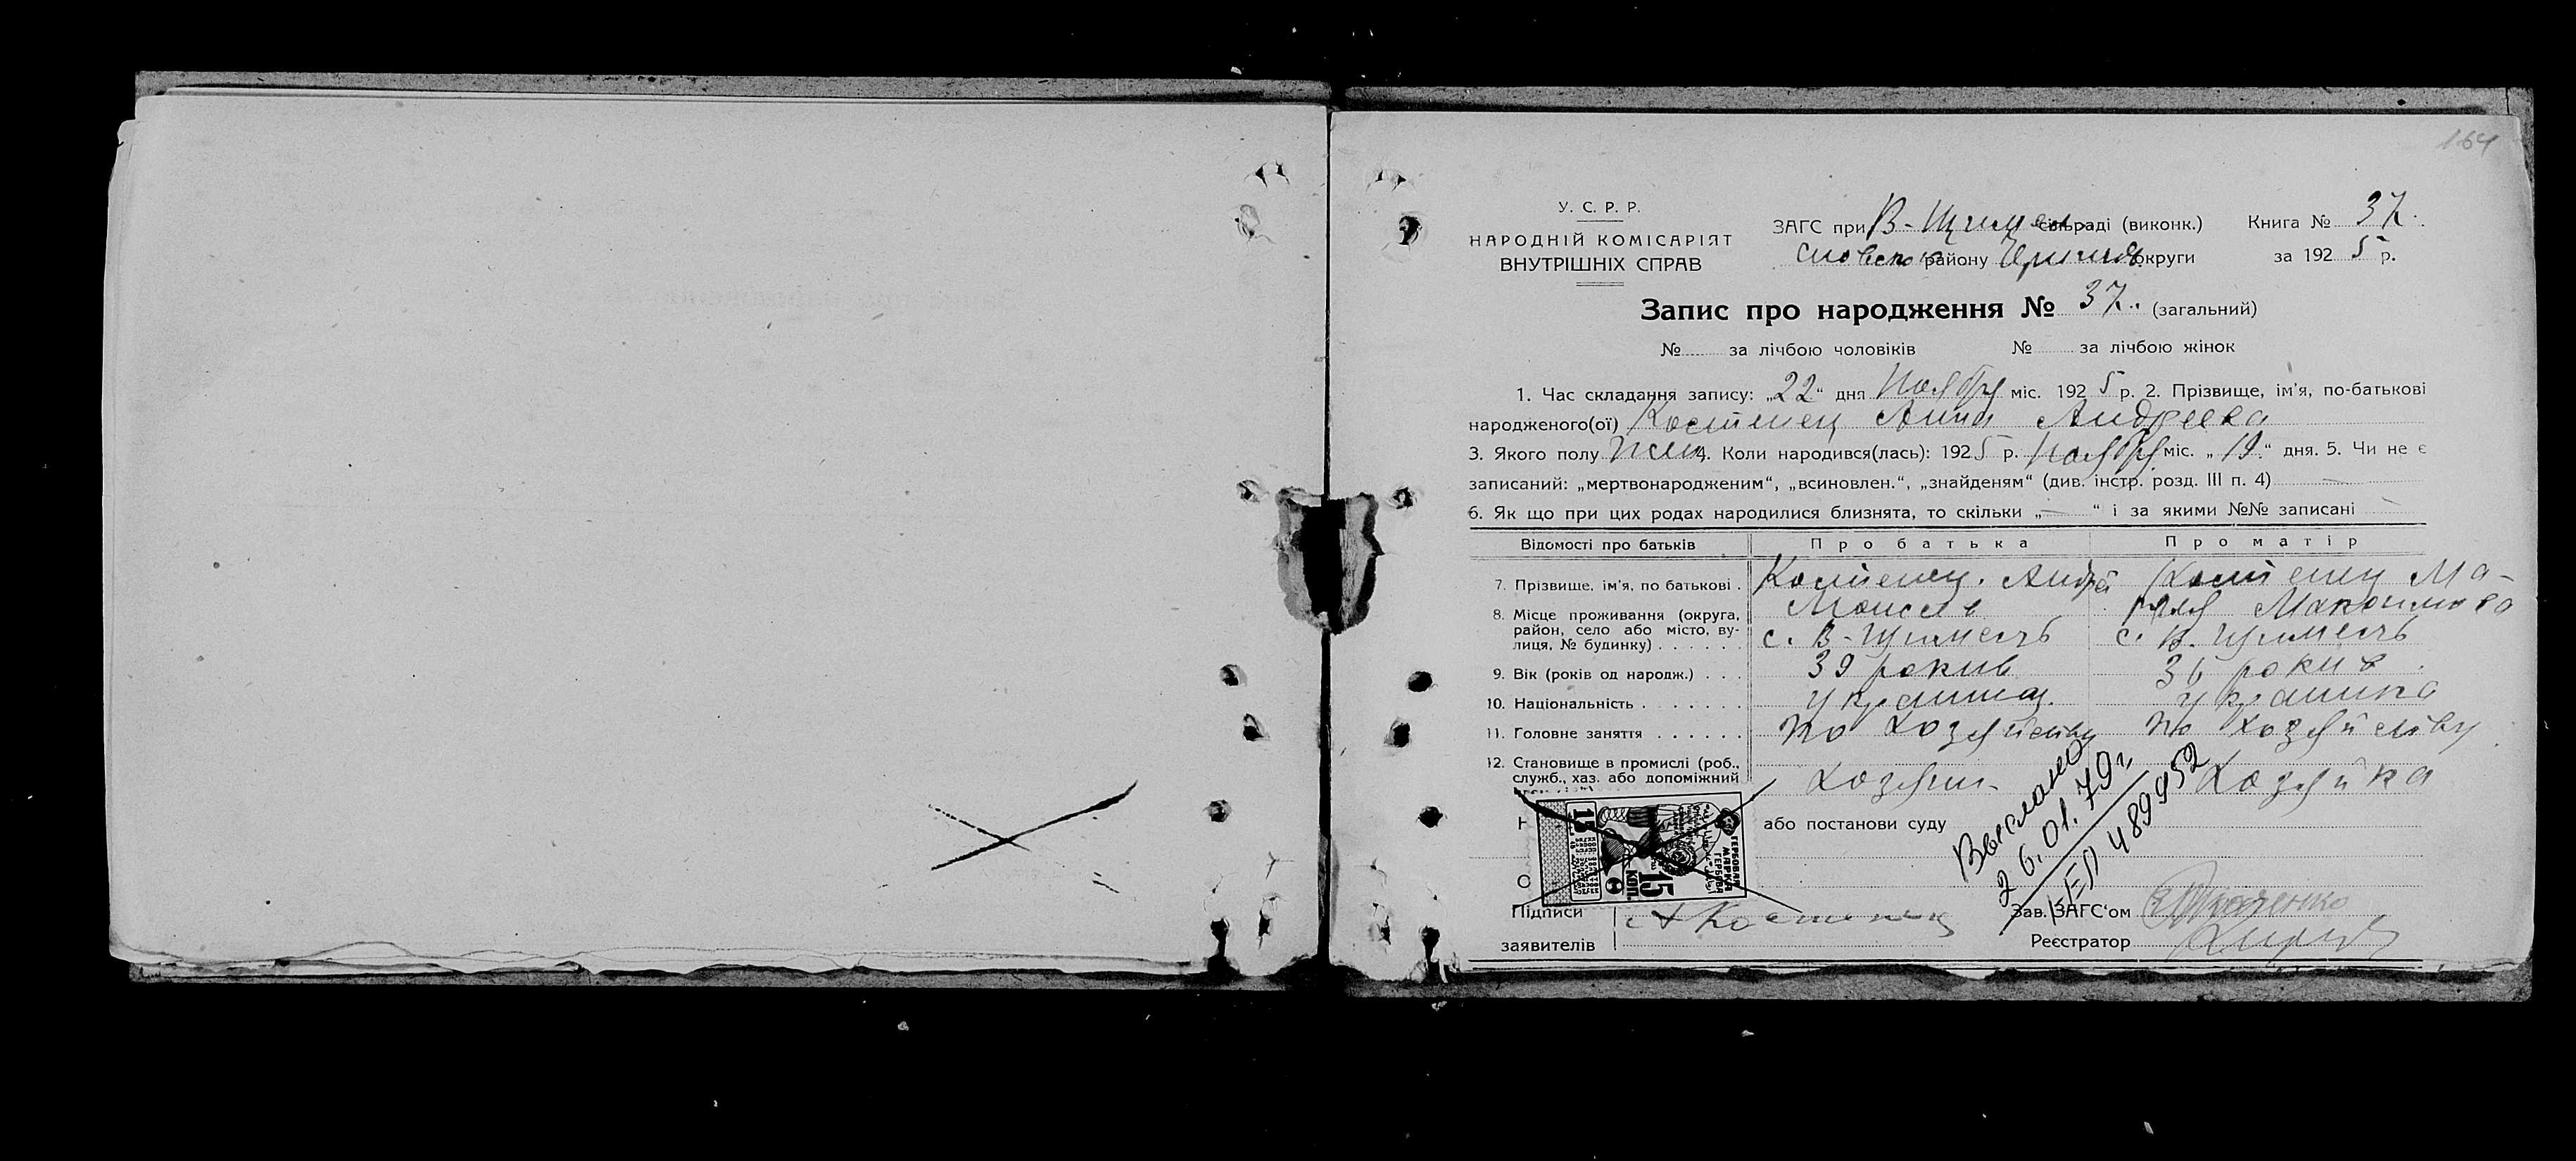 164
У. С. Р. Р.
НАРОДНІЙ КОМІСАРІЯТ
ВНУТРІШНІХ СПРАВ
ЗАГС при В-Щимел сільраді (виконк.) Книга № 37.
району округи за 192 5 р.
Запис про народження № 37. (загальний)
№ за лічбою чоловіків № за лічбою жінок
1. Час складання запису: „22“ дня Ноября міс. 192 5 р. 2. Прізвище, ім'я, по-батькові
народженого(ої) Костенец Анна Андреева
3. Якого полу жен 4. Коли народився(лась): 192 5 р. Ноября міс. „19“ дня. 5. Чи не є
записаний: „мертвонародженим“, „всиновлен.“, „знайденям“ (див. інстр. розд. III п. 4) —
6. Як що при цих родах народилися близнята, то скільки „—“ і за якими №№ записані —
Відомості про батьків Про батька Про матір
7. Прізвище, ім'я, по батькові . Костенец. Андрей Костенец Ма-
Моисеев Максимова
8. Місце проживання (округа, район, село або місто, вулиця, № будинку) . . . . . . с. В-Щимель с. В. Щимель
9. Вік (років од народж.) . . . 39 рокив 36 рокив
10. Національність . . . . . . . украинец. украинка
11. Головне заняття . . . . . . По хозяйству По хозяйству
12. Становище в промислі (роб., служб., хаз. або допоміжний хозяин хозяйка
або постанови суду
Выслано
26.01.79 г.
489952
ГЕРБОВАЯ МАРКА
15 КОП.
15
Підписи А Костенец Зав. ЗАГС'ом Ткаченко
заявителів Реєстратор